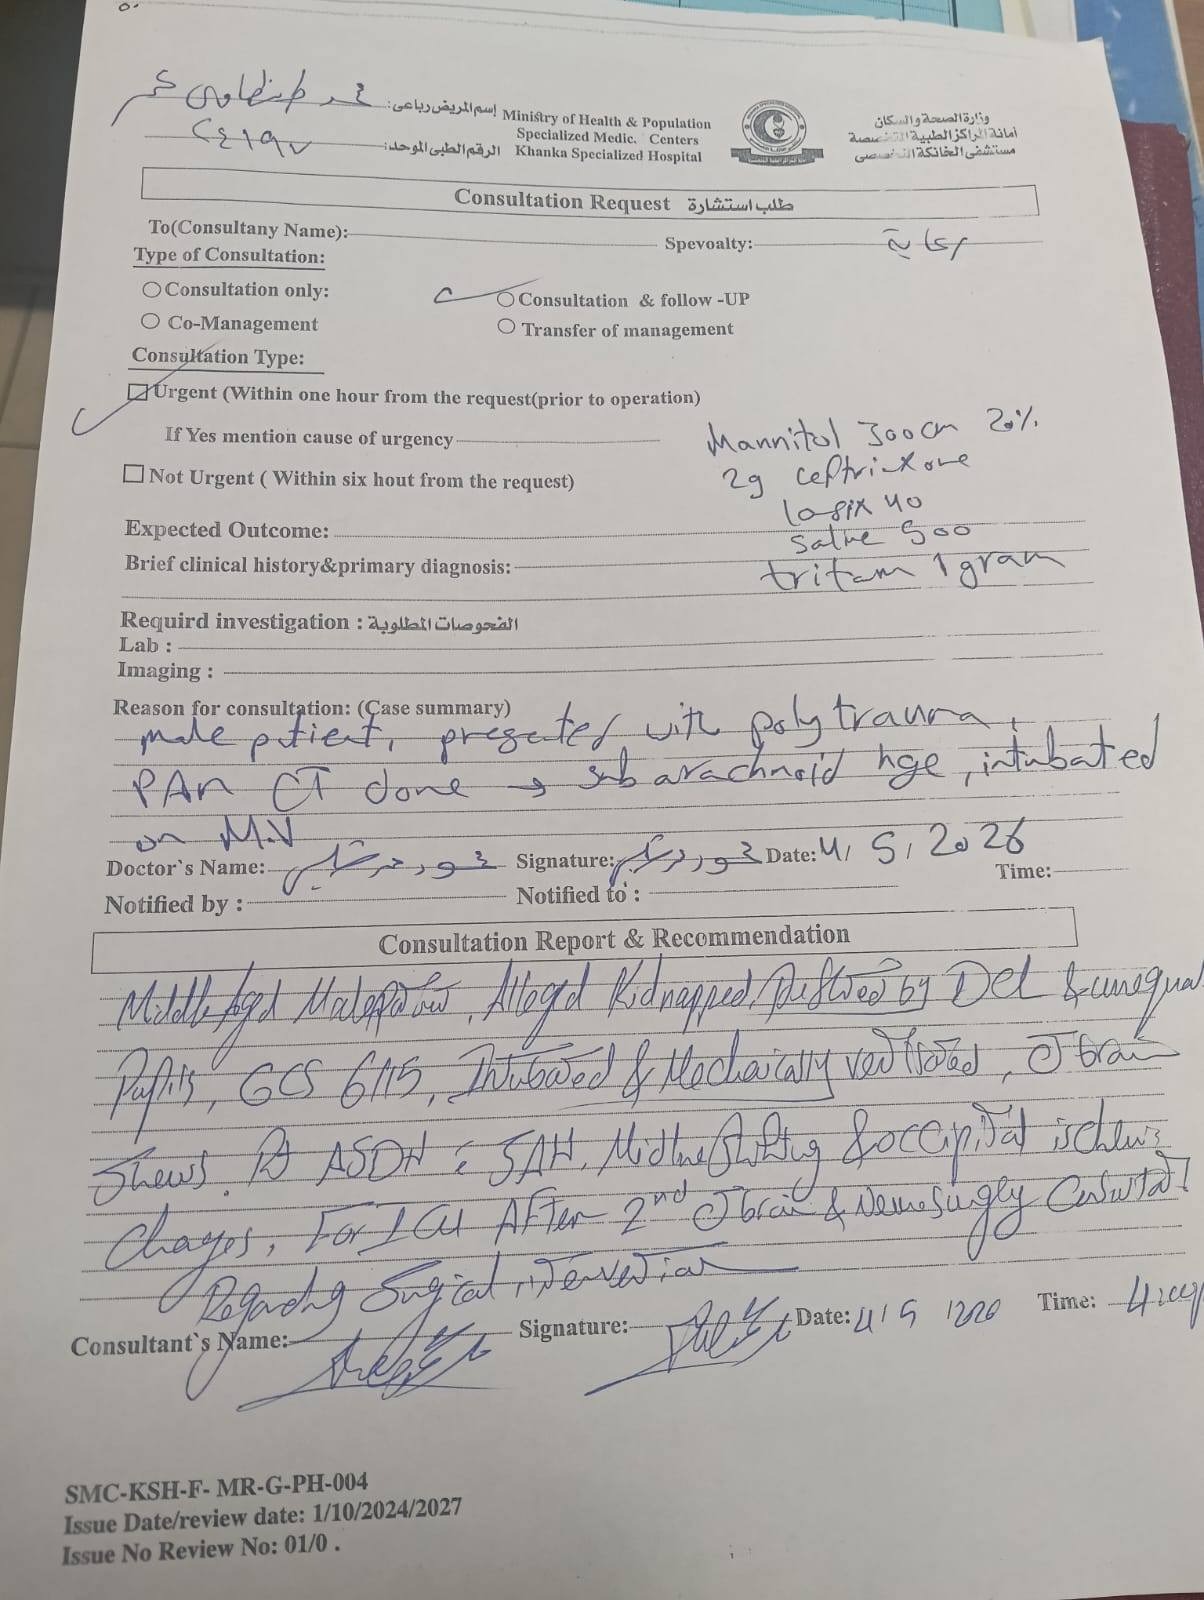 وزارة الصحة والسكان
أمانة المراكز الطبية المتخصصة
مستشفى الخانكة التخصصى
Ministry of Health & Population
Specialized Medic. Centers
Khanka Specialized Hospital
إسم المريض رباعى:
الرقم الطبى الموحد: ٢٤١٩٧
Consultation Request طلب استشارة
To(Consultany Name): Spevoalty: رعاية
Type of Consultation:
Consultation only: Consultation & follow -UP
Co-Management Transfer of management
Consultation Type:
Urgent (Within one hour from the request(prior to operation)
If Yes mention cause of urgency
Mannitol 300cm 20%
Not Urgent ( Within six hout from the request)
2g ceftrixone
lasix 40
Expected Outcome:
saline 500
Brief clinical history&primary diagnosis:
tritam 1 gram
Requird investigation : الفحوصات المطلوبة
Lab :
Imaging :
Reason for consultation: (Case summary)
male patient, presented with polytrauma,
PAN CT done → subarachnoid hge, intubated
on M.V
Doctor`s Name: Signature: Date: 4/ 5/ 2026
Time:
Notified by : Notified to :
Consultation Report & Recommendation
Middle Aged Male, Alleged Kidnapped, by DCL & unequal
Pupils, GCS 6/15, Intubated & Mechanically ventilated, CT brain
Shews ASDH SAH, Midline shifting & occipital ischemic
Changes, For ICU After 2nd CT brain &
Regarding Surgical intervention
Consultant`s Name: Signature: Date: Time:
SMC-KSH-F- MR-G-PH-004
Issue Date/review date: 1/10/2024/2027
Issue No Review No: 01/0 .